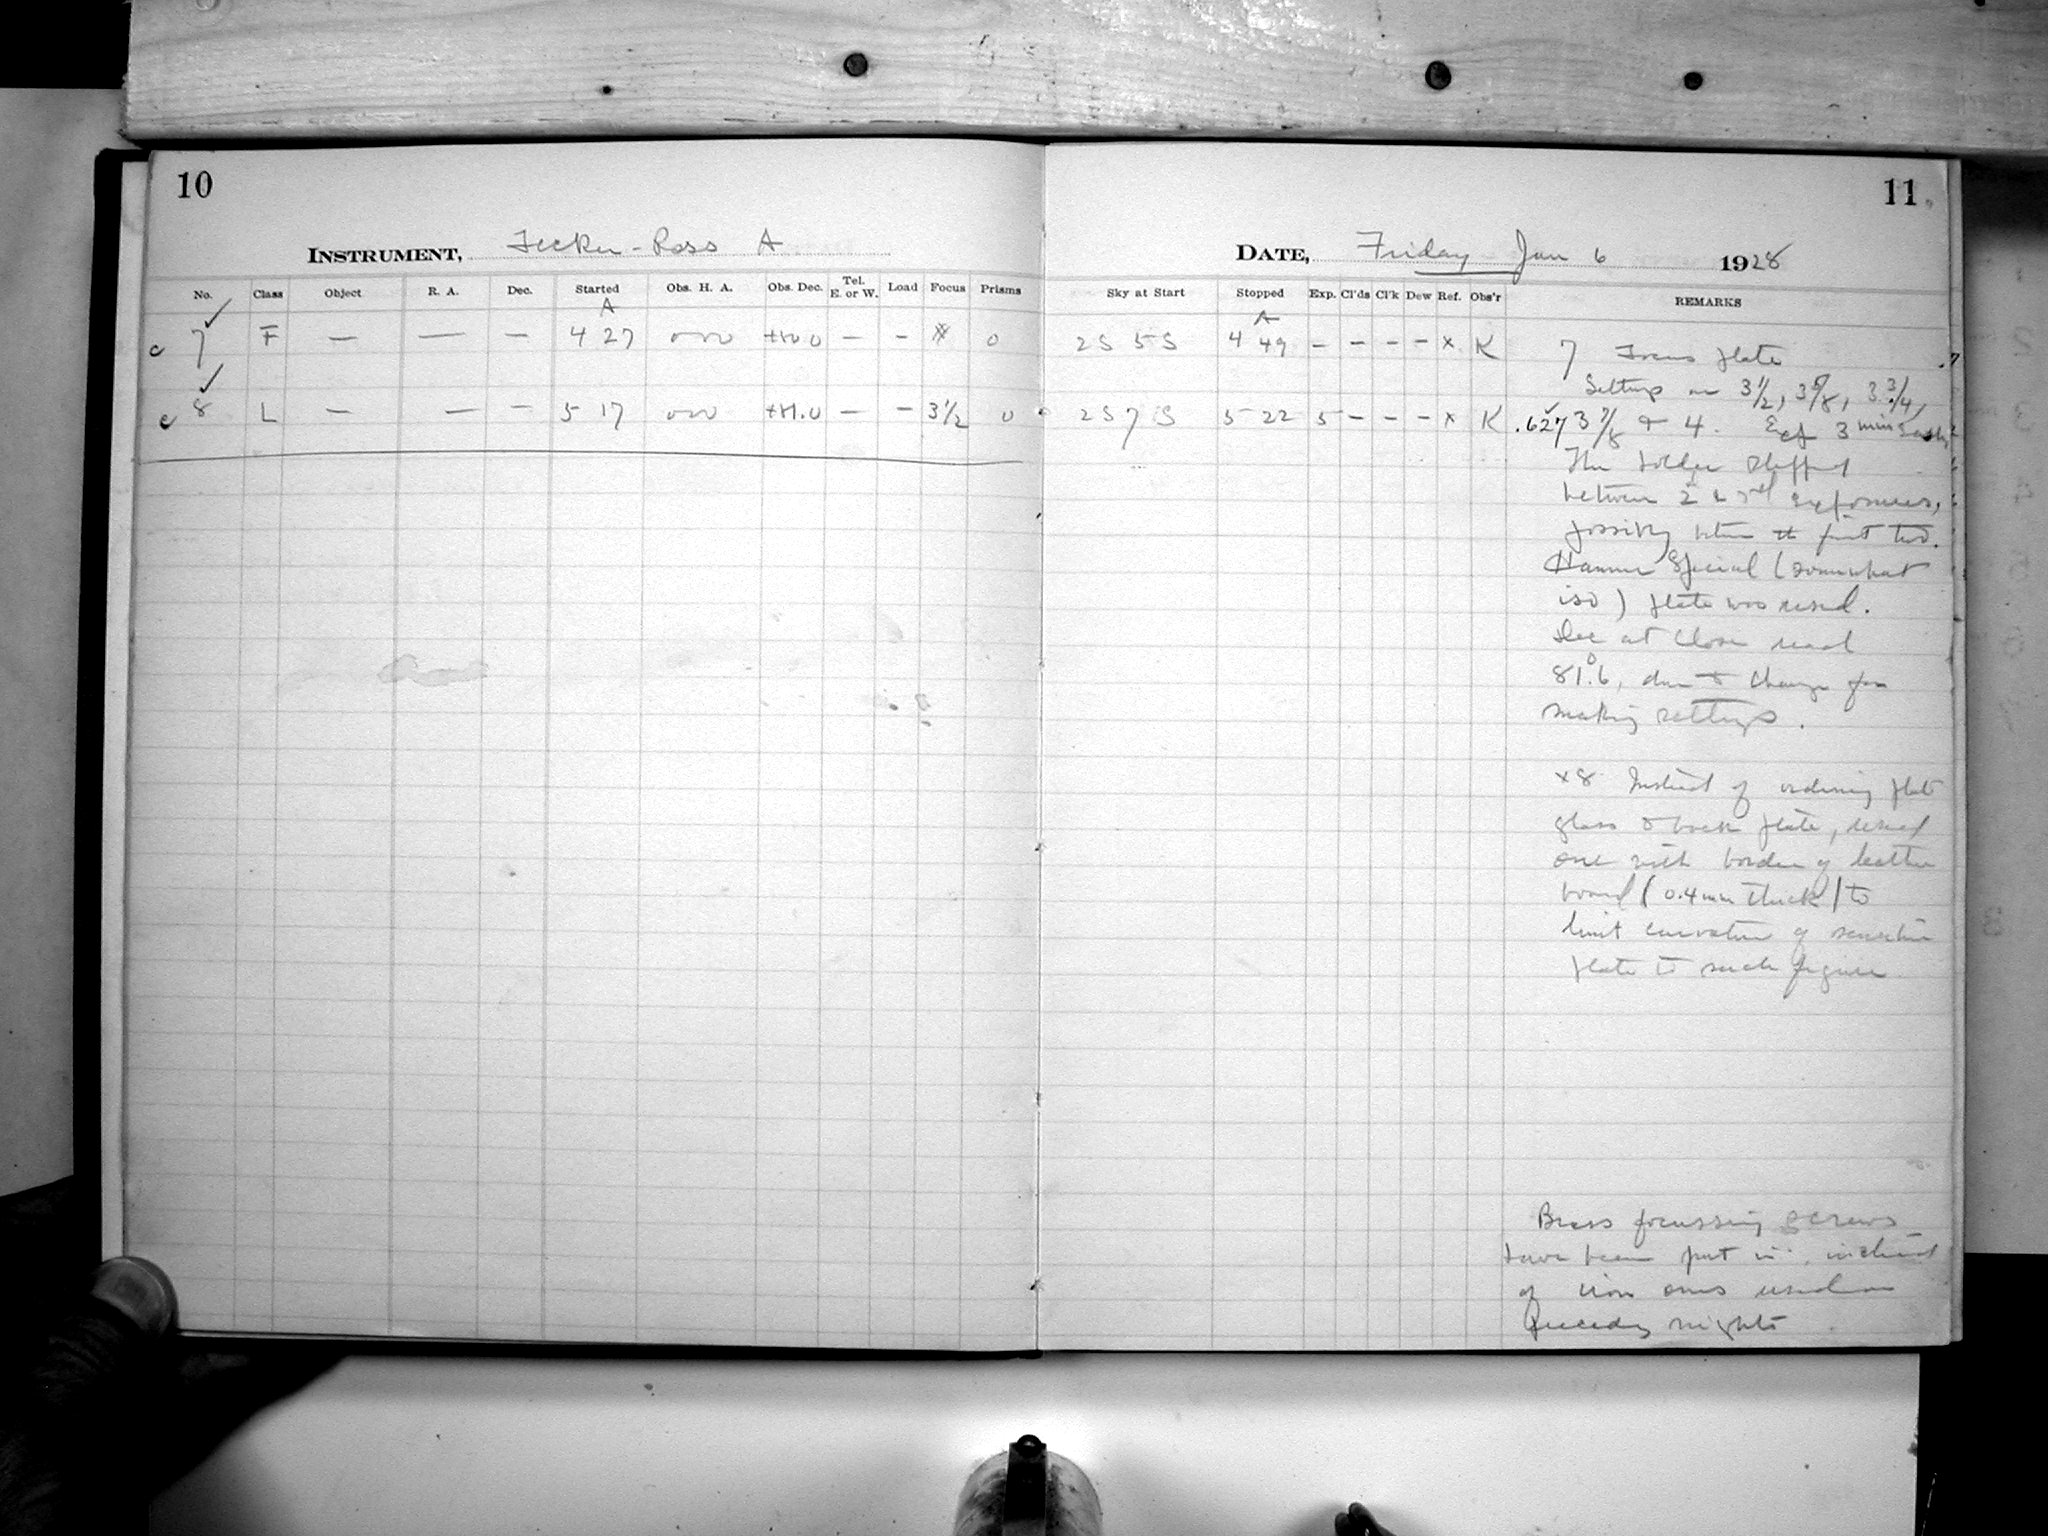 10
INSTRUMENT, Fecker-Ross A
No. Class Object R. A. Dec. Started Obs. H. A. Obs. Dec. Tel. E. or W. Load Focus Prisms
A
7 F — — — 4 27 — — 0
8 L — — — 5 17 — — 3 1/2 0
11
DATE, Friday Jan 6 1928
Sky at Start Stopped Exp. Cl'ds Cl'k Dew Ref. Obs'r REMARKS
A
2S 5S 4 49 — — — — x K
7 Focus plate
Settings on 3 1/2, 3 5/8, 3 3/4,
2S 7S 5 22 5 — — — x K .627 3 7/8 & 4. Exp 3 min each
The holder slipped
between 2 & 3rd exposures,
possibly between the first two.
Hammer Special (somewhat
iso) plate was used.
Dec at close read
81.°6, due to change for
making settings.
x8 Instead of ordinary flat
glass to back plate, used
one with border of leather
board (0.4mm thick) to
limit curvature of sensitive
plate to such figure
Brass focussing screws
have been put in, instead
of iron ones used on
preceding nights